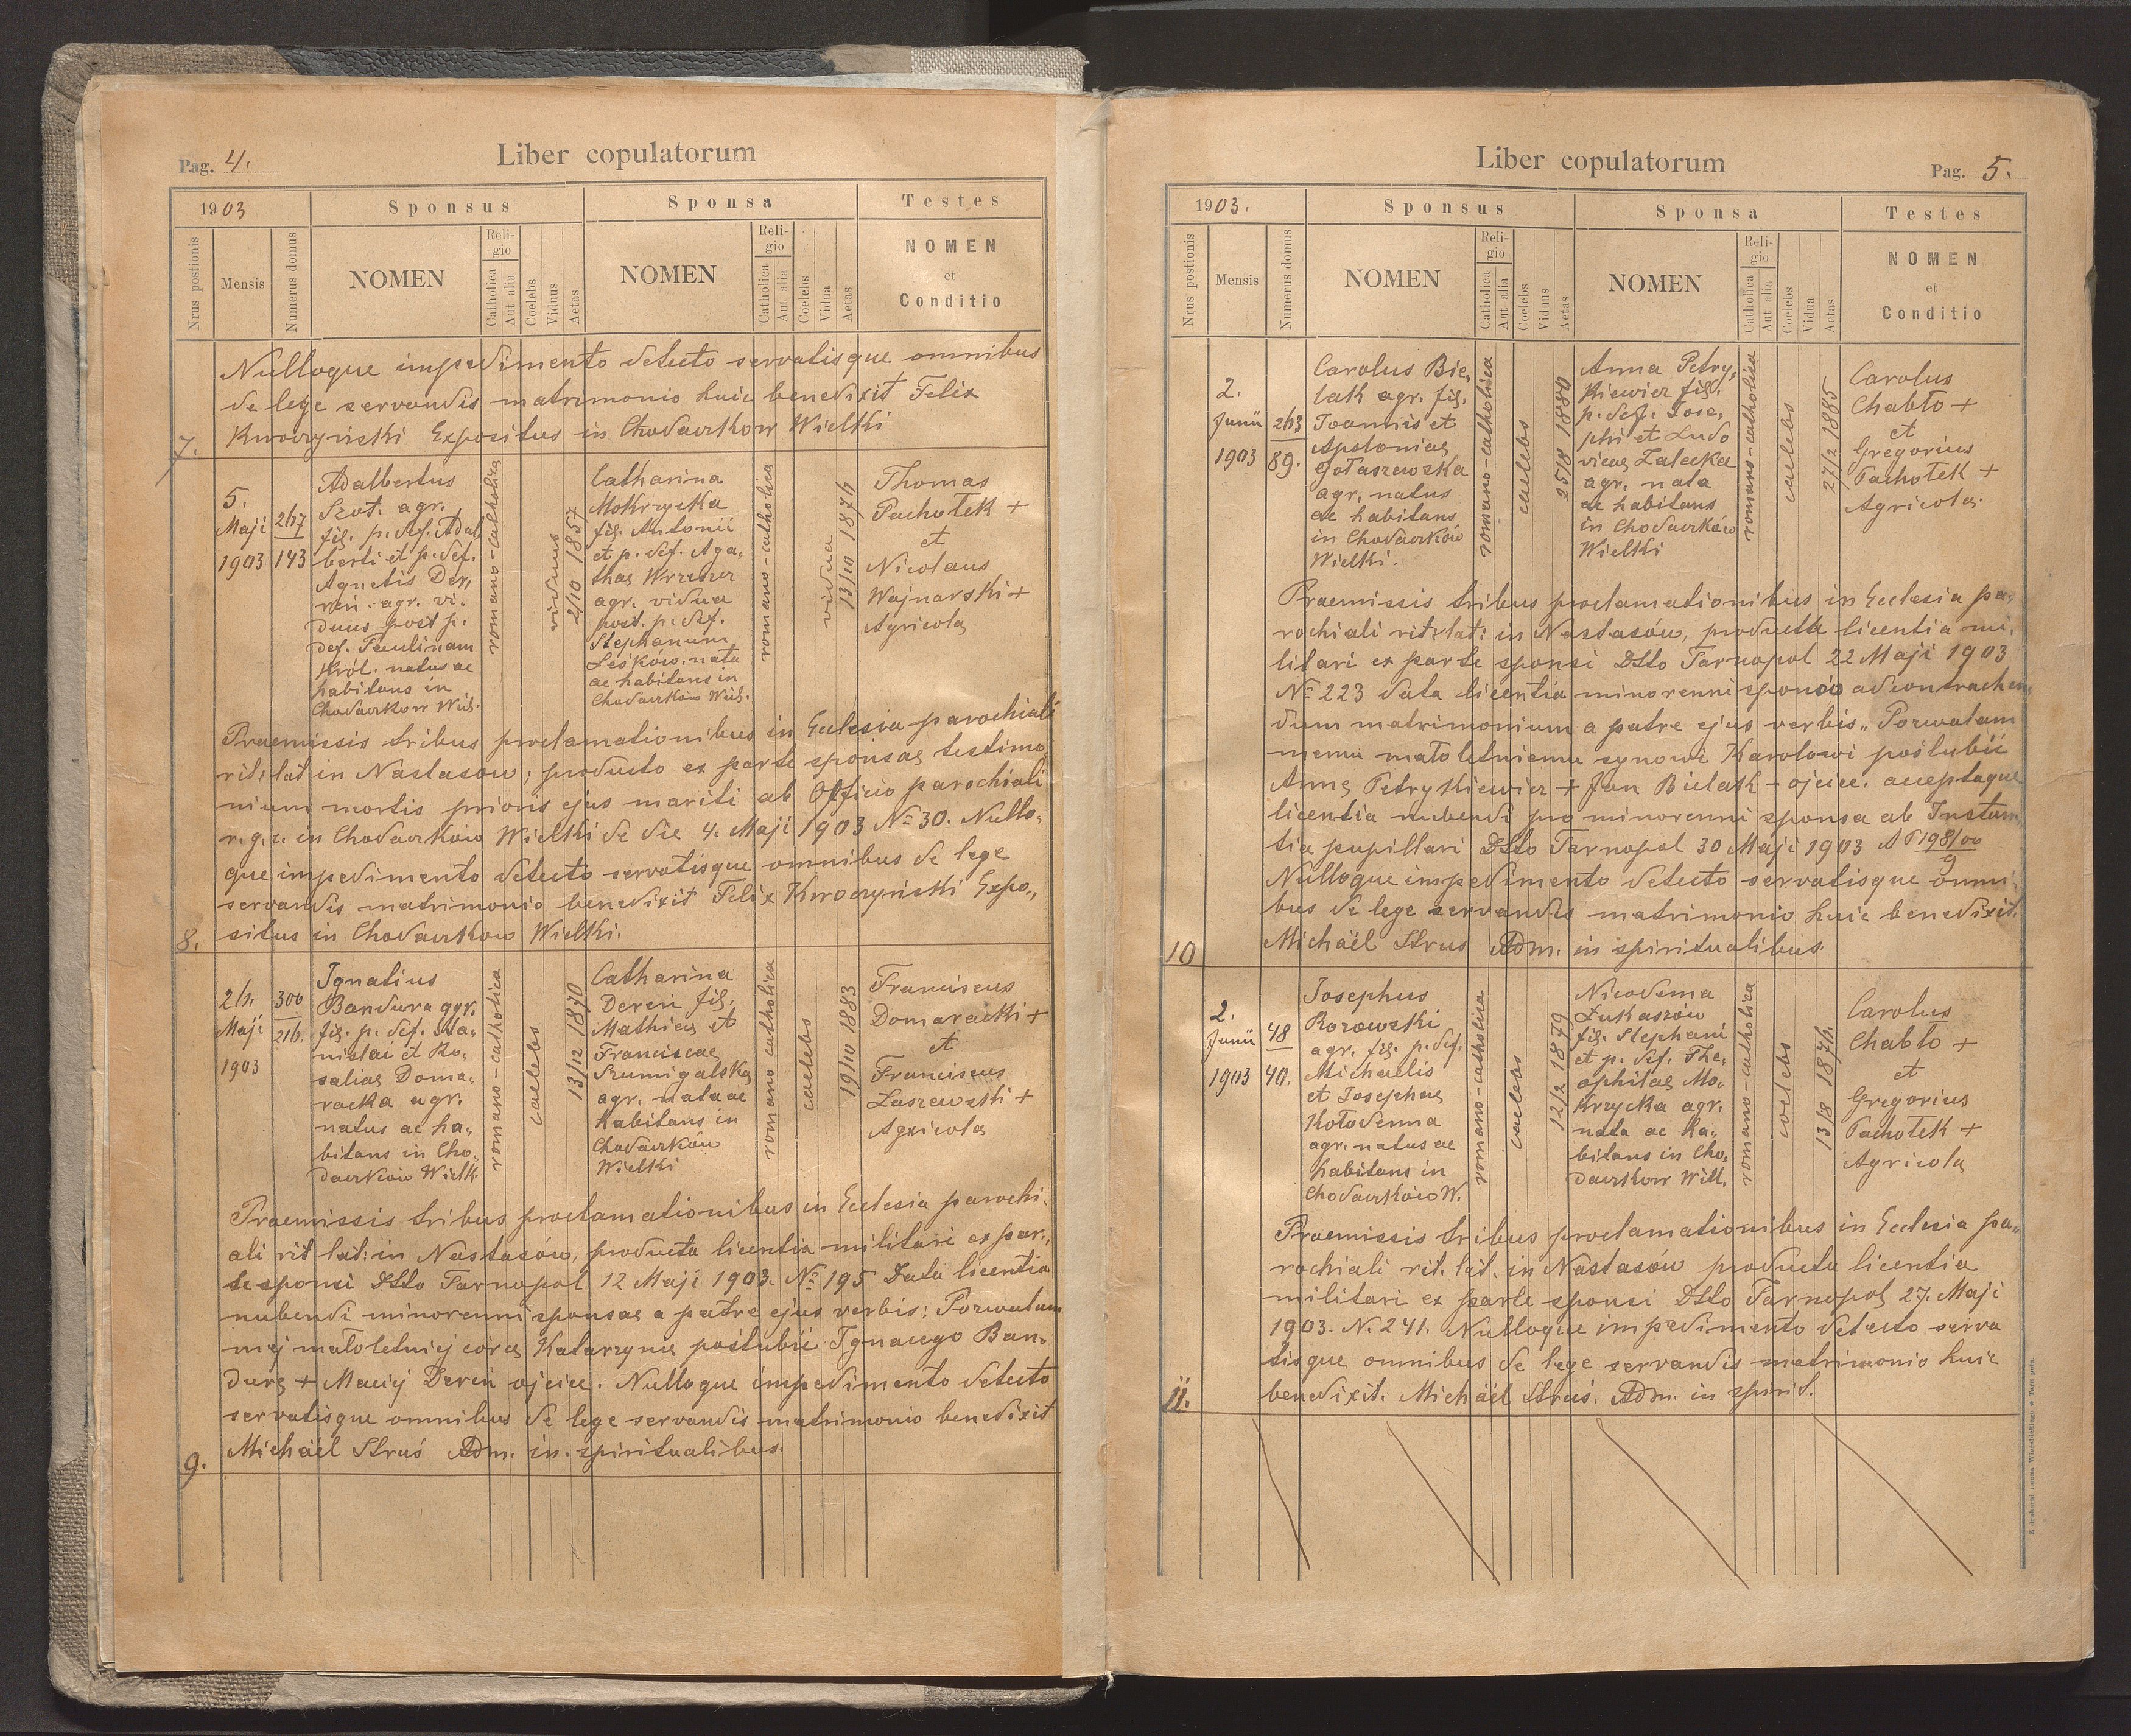 Pag. 4.
Liber copulatorum
1903
Sponsus
Sponsa
Testes
Nrus postionis
Mensis
Numerus domus
NOMEN
Religio
Catholica
Aut alia
Coelebs
Viduus
Aetas
NOMEN
Religio
Catholica
Aut alia
Coelebs
Vidua
Aetas
NOMEN
et
Conditio
Nulloque impedimento detecto servatisque omnibus
de lege servandis matrimonio huic benedixit Felix
7. Kwoczyński Expositus in Chodaczkow Wielki
5.
Maji
1903
267
143
Adalbertus
Szot. agr.
fil. p. def. Adal
berti et p. def.
Agnetis Der,
reń. agr. vi.
duus post p.
def. Paulinam
Król. natus ac
habitans in
Chodaczkow Wiel.
romano-catholica
viduus
2/10 1857
Catharina
Mokrzycka
fil. Antonii
et p. def. Aga-
thae Wrzeszcz
agr. vidua
post. p. def.
Stephanum
Leśków. nata
ac habitans in
Chodaczków Wiel.
romano-catholica
vidua
13/10 1876
Thomas
Pachołek +
et
Nicolaus
Wajnarski +
Agricola
Praemissis tribus proclamationibus in Ecclesia parochiali
rit: lat in Nastasow; producto ex parte sponsae testimo,
nium mortis prioris ejus mariti ab Officio parochiali
r. g. c. in Chodaczków Wielki de die 4. Maji 1903 № 30. Nullo-
que impedimento detecto servatisque omnibus de lege
servandis matrimonio benedixit Felix Kwoczyński Expo,,
8. situs in Chodaczkow Wielki.
26.
Maji
1903
300
216.
Ignatius
Bandura agr.
fil. p. def. Sta-
nislai et Ro.
saliae Doma.
racka agr.
natus ac ha,
bitans in Cho,
daczków Wielk
romano-catholica
caelebs
13/12 1870
Catharina
Dereń fil.
Mathiae et
Franciscae
Szumigalska
agr. nata ac
habitans in
Chodaczków
Wielki
romano catholica
caelebs
19/10 1883
Franciscus
Domaracki +
et
Franciscus
Łaszewski +
Agricola
Praemissis tribus proclamationibus in Ecclesia parochi.
ali rit lat: in Nastasów, producta licentia militari ex par,,
te sponsi Dtto Tarnopol 12 Maji 1903. № 195 Data licentia
nubendi minorenni sponsae a patre ejus verbis: Pozwalam
mej małoletniej córce Katarzynie poślubić Ignacego Ban-
durę + Maciej Dereń ojciec. Nulloque impedimento detecto
servatisque omnibus de lege servandis matrimonio benedixit
9. Michaël Struś Adm. in. spiritualibus.
Liber copulatorum
Pag. 5.
1903.
Sponsus
Sponsa
Testes
Nrus postionis
Mensis
Numerus domus
NOMEN
Religio
Catholica
Aut alia
Coelebs
Viduus
Aetas
NOMEN
Religio
Catholica
Aut alia
Coelebs
Vidua
Aetas
NOMEN
et
Conditio
2.
Junii
1903
263
89.
Carolus Bie,
lak agr. fil.
Joannis et
Apoloniae
Gołaszewska
agr. natus
ac habitans
in Chodaczków
Wielki.
romano-catholica
caelebs
25/8 1880
Anna Petry,
kiewicz fil.
p. def. Jose,
phi et Ludo
vicae Zalecka
agr. nata
ac habitans
in Chodaczków
Wielki
romano-catholica
caelebs
27/2 1885
Carolus
Chabło +
et
Gregorius
Pachołek +
Agricola.
Praemissis tribus proclamationibus in Ecclesia pa,
rochiali rit: lat: in Nastasów, producta licentia mi,
litari ex parte sponsi Dtto Tarnopol 22 Maji 1903
№ 223 data licentia minorenni sponso ad contrahen,
dum matrimonium a patre ejus verbis „Pozwalam
memu małoletniemu synowi Karolowi poślubić
Annę Petrykiewicz + Jan Bielak - ojciec. acceptaque
licentia nubendi pro minorenni sponsa ab Instan,
tia pupillari Dtto Tarnopol 30 Maji 1903 A P 198/00
9
Nulloque impedimento detecto servatisque omni,
bus de lege servandis matrimonio huic benedixit.
10 Michaël Strus Adm. in spiritualibus.
2.
Junii
1903
48
40.
Josephus
Rozowski
agr. fil. p. def.
Michaelis
et Josephae
Kołodenna
agr. natus ac
habitans in
Chodaczków W.
romano-catholica
caelebs
12/2 1879
Nicodema
Łukaszów
fil. Stephani
et p. def. The,
ophilae Mo,
krzycka agr.
nata ac ha,
bitans in Cho,
daczkow Will.
romano-catholica
coelebs
13/8 1876.
Carolus
Chabło +
et
Gregorius
Pachołek +
Agricola
Praemissis tribus proclamationibus in Ecclesia pa,,
rochiali rit. lat. in Nastasów producta licentia
militari ex parte sponsi Dtto Tarnopol 27. Maji
1903. N. 241. Nulloque impedimento detecto serva
tisque omnibus de lege servandis matrimonio huic
11. benedixit. Michaël Struś. Adm. in spirit.